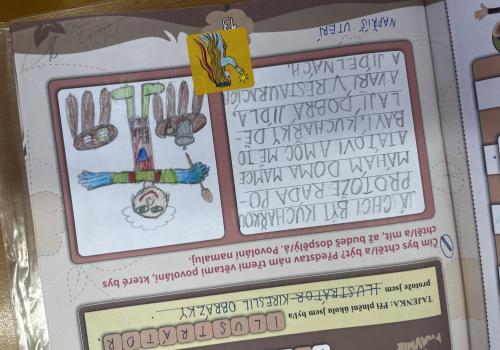 ILUSTRÁTOR
TAJENKA: Při plnění úkolu jsem byl/a
protože jsem ILUSTRÁTOR KRESLIL OBRÁZKY.
Čím bys chtěl/a být? Představ nám třemi větami povolání, které bys
chtěl/a mít, až budeš dospělý/á. Povolání namaluj.
JÁ CHCI BÝT KUCHAŘKOU
PROTOŽE RÁDA PO-
MÁHÁM DOMA MAMCE
A TAŤOVI A MOC MĚ TO
BAVÍ. KUCHAŘKY DĚ-
LAJÍ DOBRÁ JÍDLA
A VAŘÍ V RESTAURACÍCH
A JÍDELNÁCH.
NAPIŠ ÚTERÍ
13